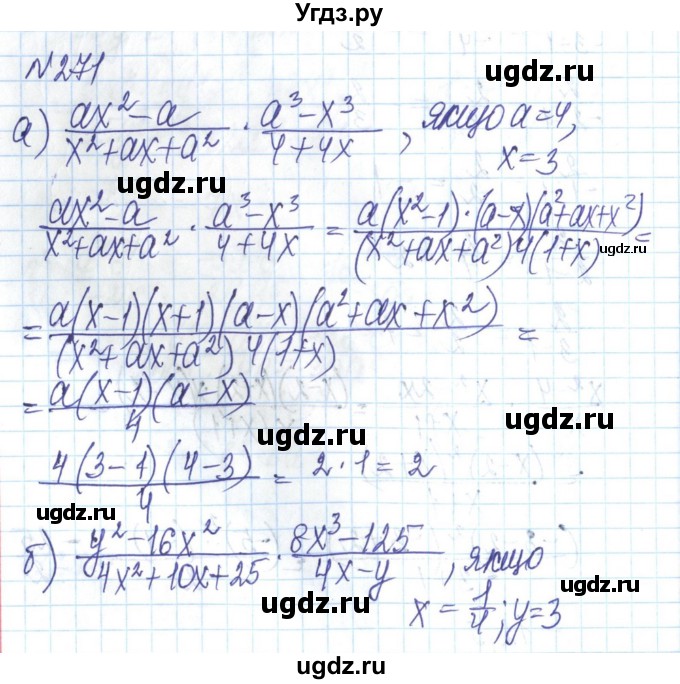 Угдз.ру
№271
ugdz.ru
а) (ax²-a)/(x²+ax+a²) · (a³-x³)/(4+4x), якщо a=4,
x=3
ugdz.ru
ugdz.ru
(ax²-a)/(x²+ax+a²) · (a³-x³)/(4+4x) = (a(x²-1)·(a-x)(a²+ax+x²))/((x²+ax+a²)4(1+x)) =
ugdz.ru
ugdz.ru
= (a(x-1)(x+1)(a-x)(a²+ax+x²))/((x²+ax+a²)4(1+x)) =
ugdz.ru
= (a(x-1)(a-x))/4
ugdz.ru
ugdz.ru
(4(3-1)(4-3))/4 = 2·1=2
ugdz.ru
ugdz.ru
б) (y²-16x²)/(4x²+10x+25) · (8x³-125)/(4x-y), якщо
x = 1/4; y=3
ugdz.ru
ugdz.ru
ugdz.ru